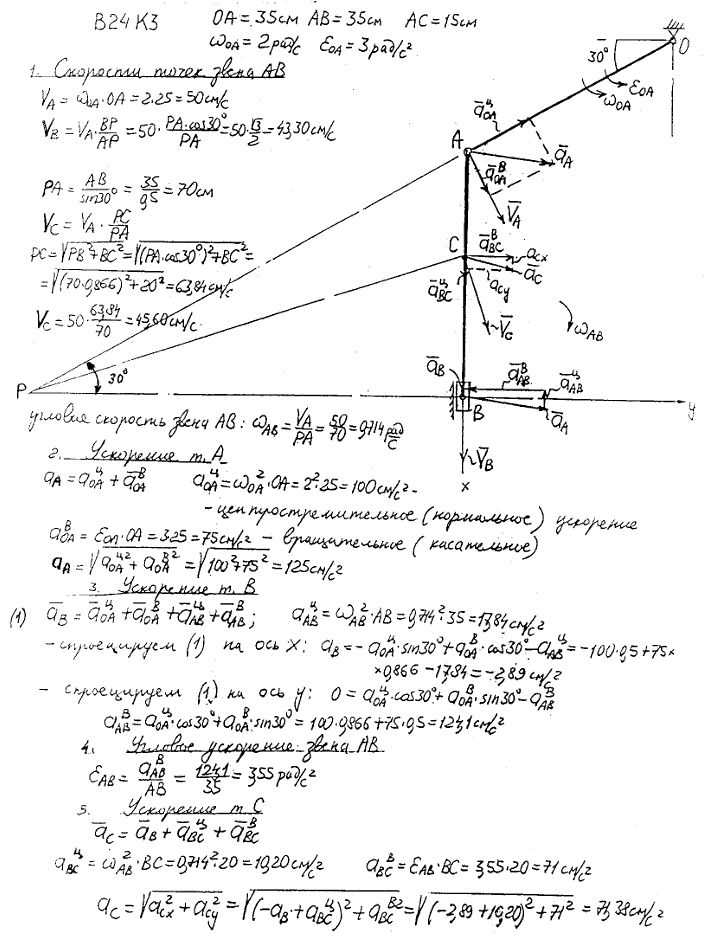 В24К3 OA = 35см AB = 35см AC = 15см
ω_OA = 2 рад/с ε_OA = 3 рад/с²
1. Скорости точек звена АВ
V_A = ω_OA · OA = 2·25 = 50 см/с
V_B = V_A · BP/AP = 50 · PA·cos30°/PA = 50·√3/2 = 43,30 см/с
PA = AB/sin30° = 35/0,5 = 70 см
V_C = V_A · PC/PA
PC = √(PB² + BC²) = √((PA·cos30°)² + BC²) =
= √((70·0,866)² + 20²) = 63,84 см/с
V_C = 50 · 63,84/70 = 45,60 см/с.
O
30°
ε_OA
ω_OA
a̅ᶸ_OA
A
a̅_A
a̅ᴮ_OA
V̅_A
C
a̅ᴮ_BC
a_cx
a̅_C
a_cy
a̅ᶸ_BC
V̅_C
ω_AB
P
30°
a̅_B
a̅ᴮ_AB
a̅ᶸ_AB
B
a̅_A
y
V̅_B
x
угловая скорость звена АВ: ω_AB = V_A/PA = 50/70 = 0,714 рад/с
2. Ускорение т. А
a_A = a̅ᶸ_OA + a̅ᴮ_OA aᶸ_OA = ω_OA² · OA = 2²·25 = 100 см/с² -
- центростремительное (нормальное) ускорение
aᴮ_OA = ε_OA · OA = 3·25 = 75 см/с² – вращательное (касательное)
a_A = √(aᶸ_OA² + aᴮ_OA²) = √(100² + 75²) = 125 см/с²
3. Ускорение т. В
(1) a̅_B = a̅ᶸ_OA + a̅ᴮ_OA + a̅ᶸ_AB + a̅ᴮ_AB; aᶸ_AB = ω_AB² · AB = 0,714²·35 = 17,84 см/с²
– спроецируем (1) на ось x: a_B = – aᶸ_OA · sin30° + aᴮ_OA · cos30° – aᶸ_AB = –100·0,5 + 75×
×0,866 – 17,84 = –2,89 см/с²
– спроецируем (1) на ось y: 0 = aᶸ_OA · cos30° + aᴮ_OA · sin30° – aᴮ_AB
aᴮ_AB = aᶸ_OA · cos30° + aᴮ_OA · sin30° = 100·0,866 + 75·0,5 = 124,1 см/с²
4. Угловое ускорение звена АВ
ε_AB = aᴮ_AB/AB = 124,1/35 = 3,55 рад/с²
5. Ускорение т. С
a̅_C = a̅_B + a̅ᶸ_BC + a̅ᴮ_BC
aᶸ_BC = ω_AB² · BC = 0,714²·20 = 10,20 см/с² aᴮ_BC = ε_AB · BC = 3,55·20 = 71 см/с²
a_C = √(a_cx² + a_cy²) = √((–a_B + aᶸ_BC)² + aᴮ_BC²) = √((–2,89 + 10,20)² + 71²) = 71,38 см/с²